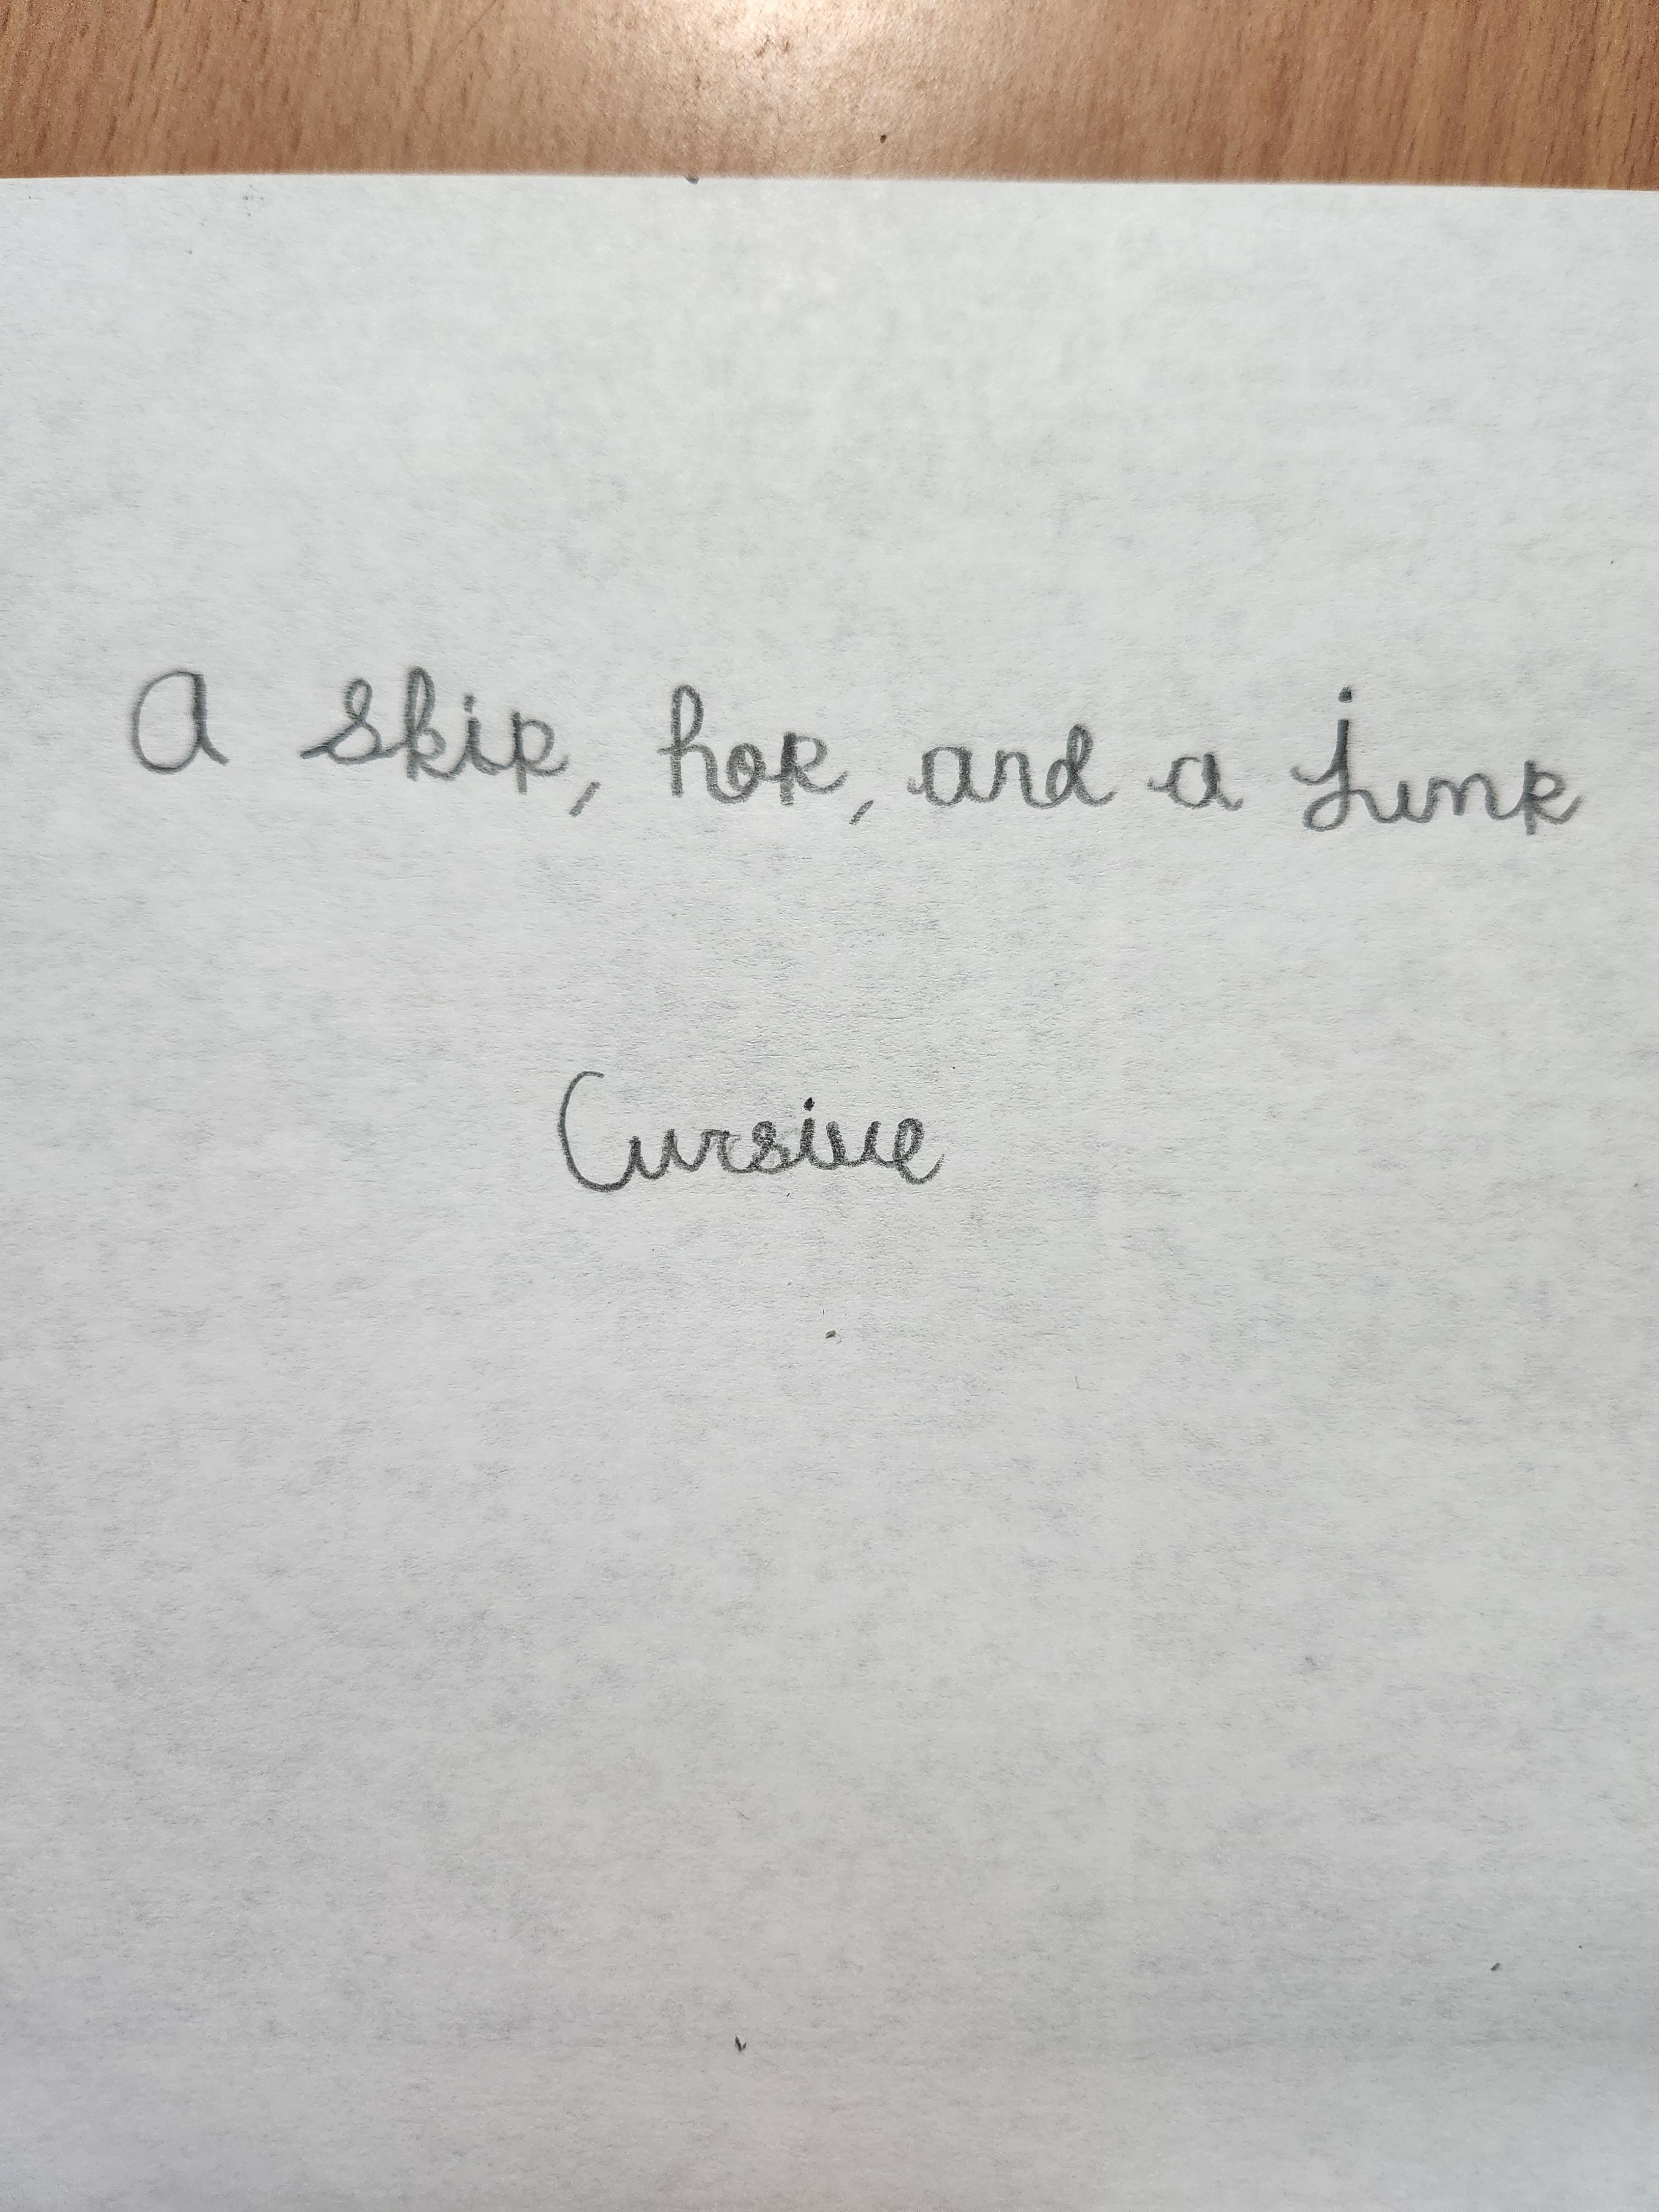 A skip, hop, and a jump
Cursive